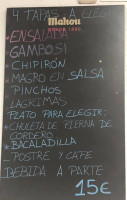 4 TAPAS A ELEGIR
Mahou
DESDE 1890
*ENSALADA
GAMBOSI
*CHIPIRÓN
*MAGRO EN SALSA
*PINCHOS
LAGRIMAS
PLATO PARA ELEGIR:
*CHULETA DE PIERNA DE
CORDERO
*BACALADILLA
-POSTRE Y CAFE
BEBIDA A PARTE
15€